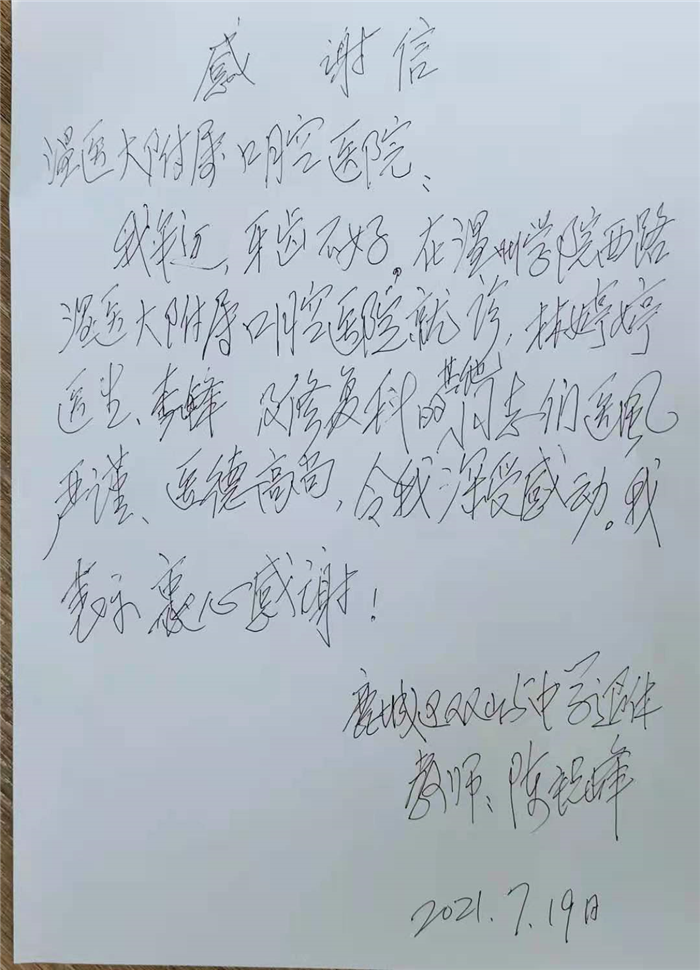 感谢信
温医大附属口腔医院:
我年迈,牙齿不好。在温州学院西路
温医大附属口腔医院就诊,林婷婷
医生、李蜂及修复科的其他同志们医风
严谨、医德高尚,令我深受感动。我
表示衷心感谢!
鹿城区双屿中学退休
教师:陈锐峰
2021.7.19日